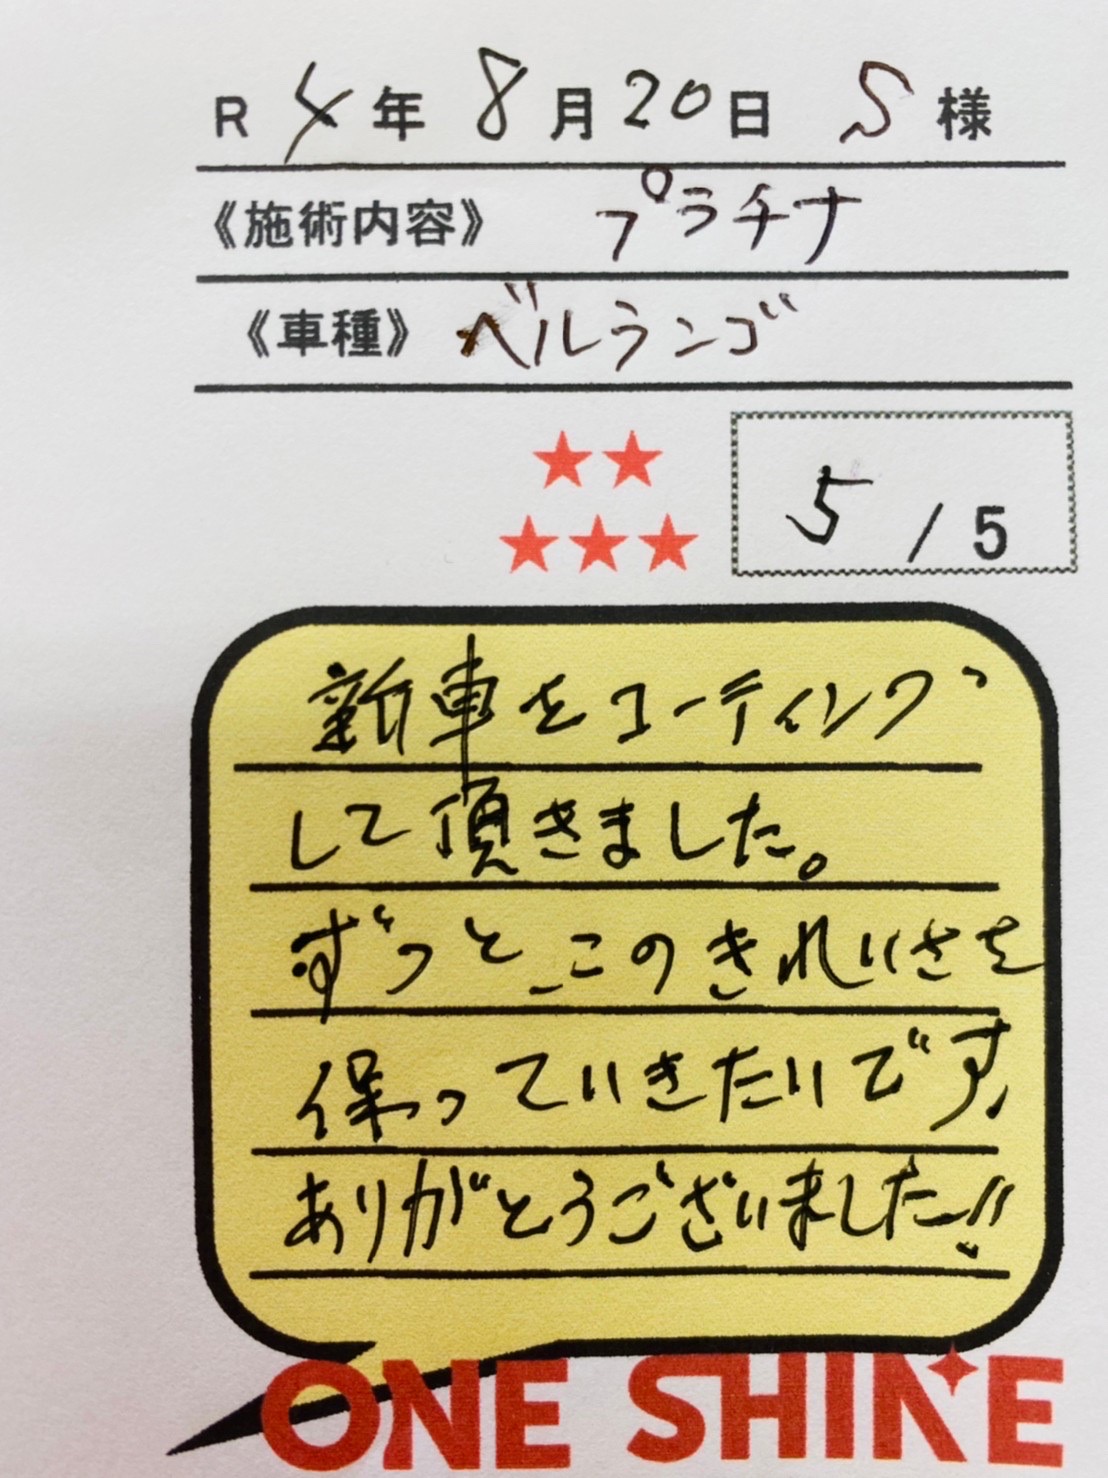 R 4年 8月20日 S 様
《施術内容》 プラチナ
《車種》 ベルランゴ
★★
★★★
5 / 5
新車をコーティング
して頂きました。
ずっと、このきれいさを
保っていきたいです。
ありがとうございました!!
ONE SHINE